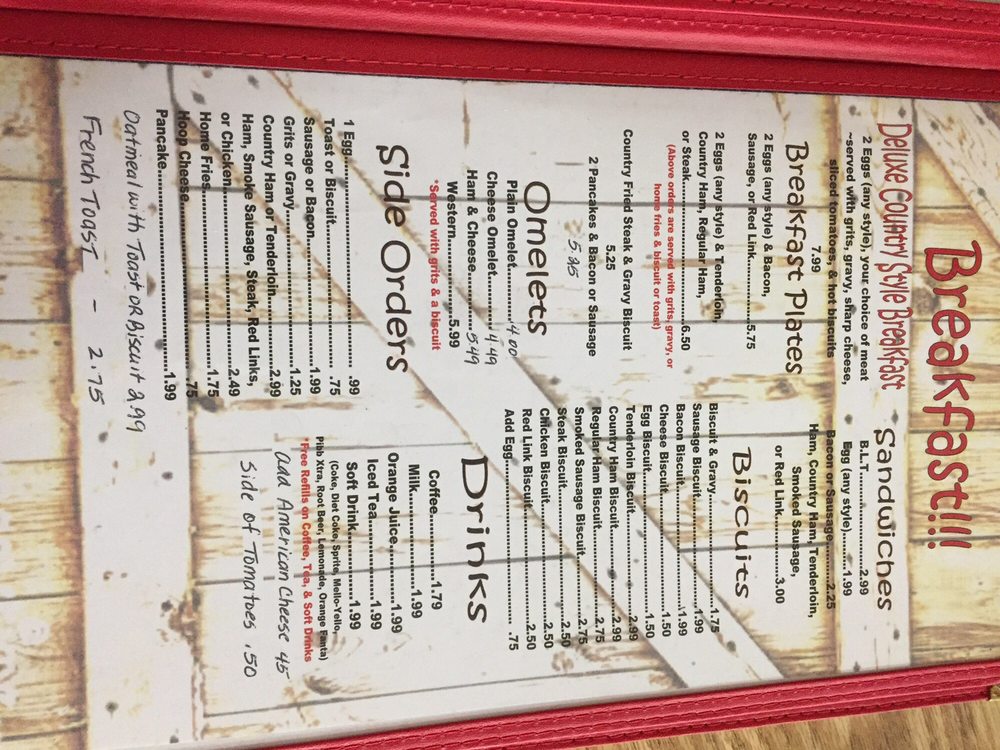 Breakfast!!!
Deluxe Country Style Breakfast
2 Eggs (any style), your choice of meat
~served with grits, gravy, sharp cheese,
sliced tomatoes, & hot biscuits
7.99
Breakfast Plates
2 Eggs (any style) & Bacon,
Sausage, or Red Link..........5.75
2 Eggs (any style) & Tenderloin,
Country Ham, Regular Ham,
or Steak..............................6.50
(Above orders are served with grits, gravy, or
home fries & biscuit or toast)
Country Fried Steak & Gravy Biscuit
5.25
2 Pancakes & Bacon or Sausage
5.25
Omelets
Plain Omelet..........4.00
Cheese Omelet..........4.49
Ham & Cheese..........5.49
Western....................5.99
*Served with grits & a biscuit
Side Orders
1 Egg.......................................... .99
Toast or Biscuit.......................... .75
Sausage or Bacon......................1.99
Grits or Gravy............................1.25
Country Ham or Tenderloin........2.99
Ham, Smoke Sausage, Steak, Red Links,
or Chicken.................................2.49
Home Fries.................................1.75
Hoop Cheese.............................. .75
Pancake......................................1.99
Oatmeal with Toast or Biscuit 2.99
French Toast - 2.75
Sandwiches
B.L.T.....................2.99
Egg (any style).......1.99
Bacon or Sausage.......2.25
Ham, Country Ham, Tenderloin,
Smoked Sausage,
or Red Link...............3.00
Biscuits
Biscuit & Gravy....................1.75
Sausage Biscuit....................1.99
Bacon Biscuit........................1.99
Cheese Biscuit......................1.50
Egg Biscuit............................1.50
Tenderloin Biscuit..................2.99
Country Ham Biscuit..............2.99
Regular Ham Biscuit..............2.75
Smoked Sausage Biscuit.........2.75
Steak Biscuit..........................2.50
Chicken Biscuit......................2.50
Red Link Biscuit.....................2.50
Add Egg................................ .75
Drinks
Coffee..............1.79
Milk....................1.99
Orange Juice..........1.99
Iced Tea..................1.99
Soft Drink................1.99
(Coke, Diet Coke, Sprite, Mello-Yello,
Pibb Xtra, Root Beer, Lemonade, Orange Fanta)
*Free Refills on Coffee, Tea, & Soft Drinks
add American Cheese 45
Side of Tomatoes .50